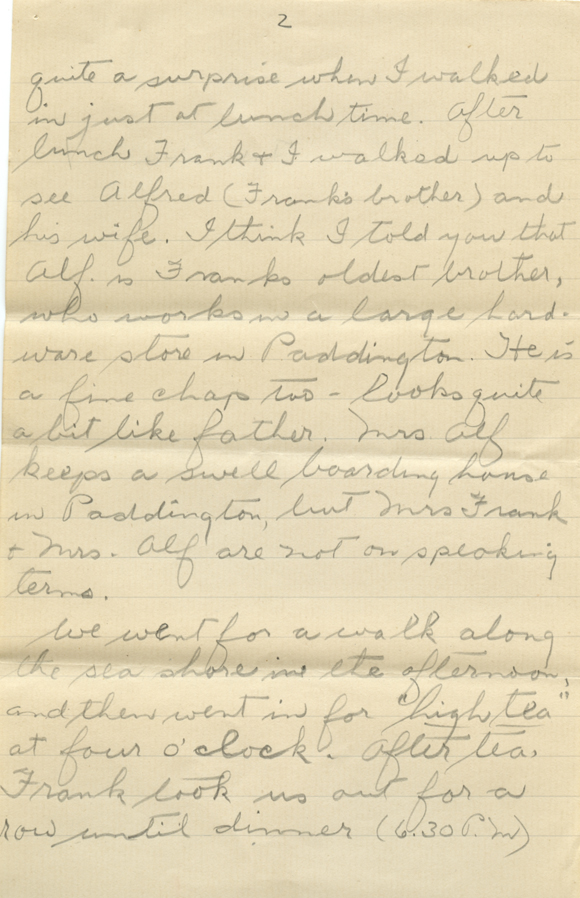 2
quite a surprise when I walked
in just at lunch time. After
lunch Frank & I walked up to
see Alfred (Franks brother) and
his wife. I think I told you that
Alf. is Franks oldest brother,
who works in a large hard-
ware store in Paddington. He is
a fine chap too - looks quite
a bit like father. Mrs. Alf
keeps a swell boarding house
in Paddington, but Mrs Frank
& Mrs. Alf are not on speaking
terms.
We went for a walk along
the sea shore in the afternoon,
and then went in for "high tea"
at four o'clock. After tea
Frank took us out for a
row until dinner (6.30 P.M)